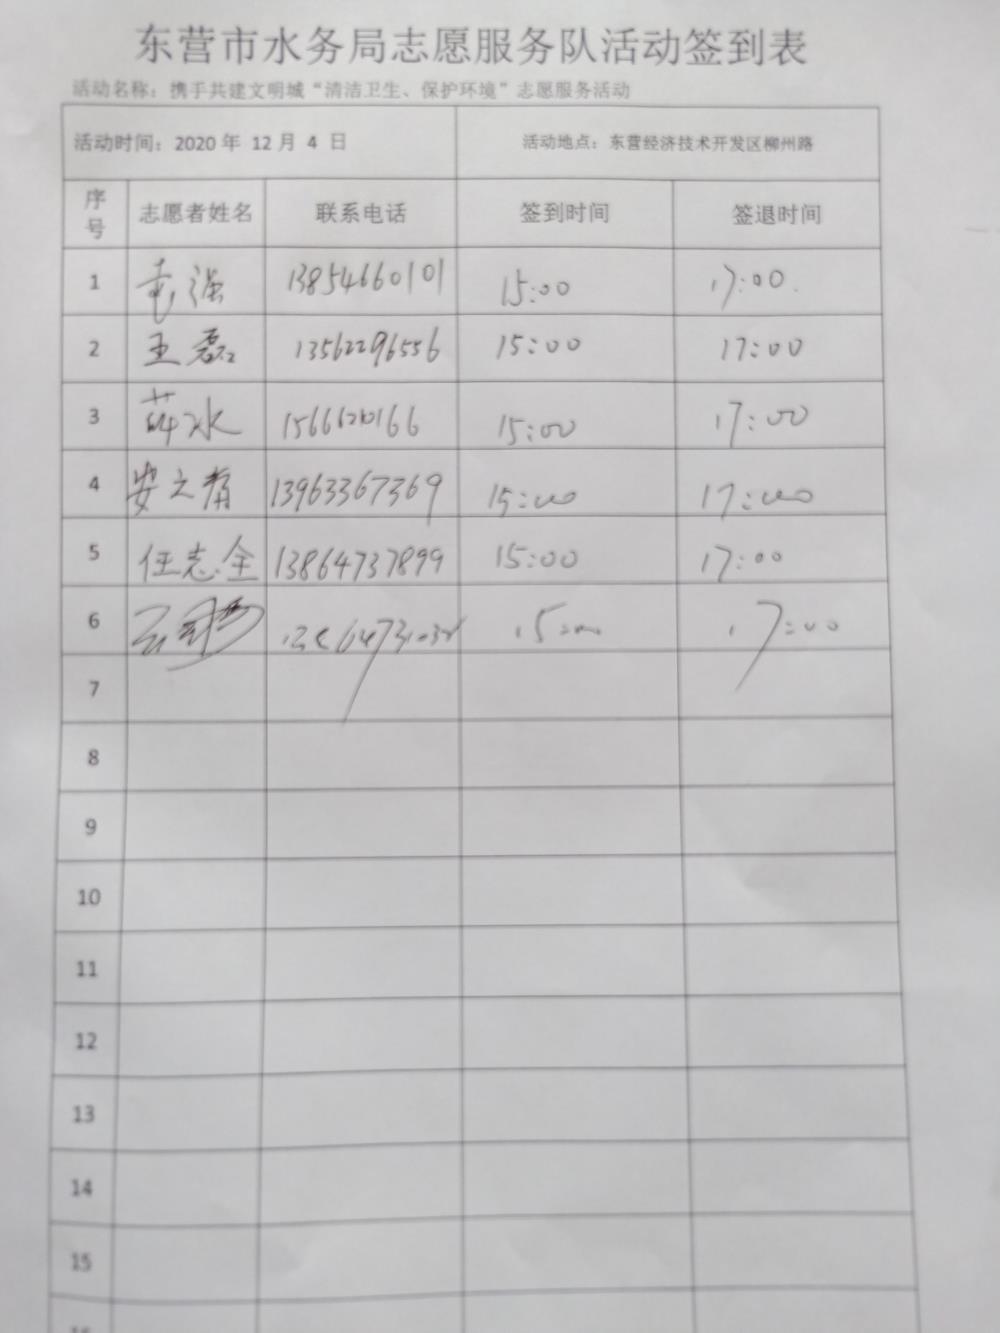 东营市水务局志愿服务队活动签到表
活动名称：携手共建文明城“清洁卫生、保护环境”志愿服务活动
活动时间：2020 年 12 月 4 日 活动地点：东营经济技术开发区柳州路
序号 志愿者姓名 联系电话 签到时间 签退时间
1 强 13854660101 15:00 17:00
2 王磊 13562296556 15:00 17:00
3 薛冰 15:00 17:00
4 安之 13963367369 15:00 17:00
5 任志全 13864737899 15:00 17:00
6 15:00 17:00
7
8
9
10
11
12
13
14
15
16